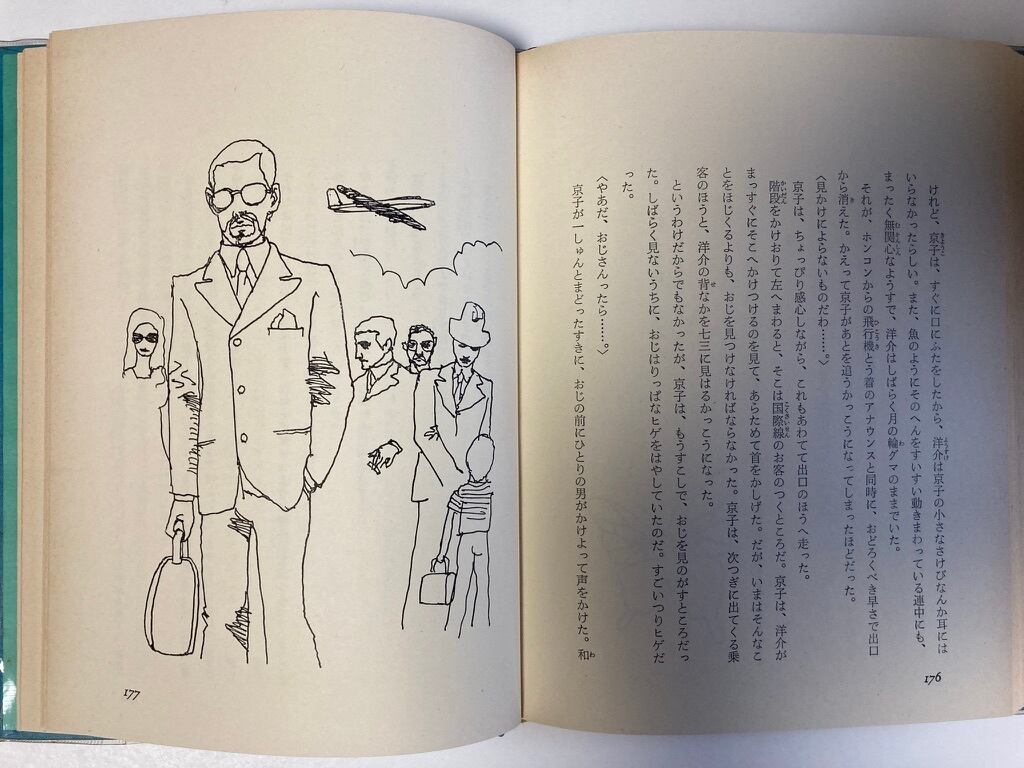 けれど、京子は、すぐに口にふたをしたから、洋介は京子の小さなさけびなんか耳には
いらなかったらしい。また、魚のようにそのへんをすいすい動きまわっている連中にも、
まったく無関心なようすで、洋介はしばらく月の輪グマのままでいた。
それが、ホンコンからの飛行機とう着のアナウンスと同時に、おどろくべき早さで出口
から消えた。かえって京子があとを追うかっこうになってしまったほどだった。
〈見かけによらないものだわ……。〉
京子は、ちょっぴり感心しながら、これもあわてて出口のほうへ走った。
階段をかけおりて左へまわると、そこは国際線のお客のつくところだ。京子は、洋介が
まっすぐにそこへかけつけるのを見て、あらためて首をかしげた。だが、いまはそんなこ
とをほじくるよりも、おじを見つけなければならなかった。京子は、次つぎに出てくる乗
客のほうと、洋介の背なかを七三に見はるかっこうになった。
というわけだからでもなかったが、京子は、もうすこしで、おじを見のがすところだっ
た。しばらく見ないうちに、おじはりっぱなヒゲをはやしていたのだ。すごいつりヒゲだ
った。
〈やあだ、おじさんったら……。〉
京子が一しゅんとまどったすきに、おじの前にひとりの男がかけよって声をかけた。和
176
177